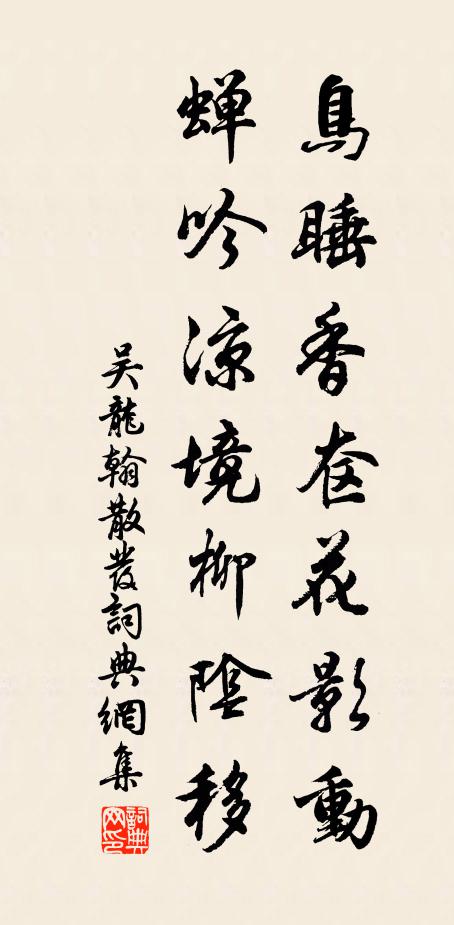 鳥睡香奁花影動
蝉吟涼境柳陰移
吴龍翰散發詞典網集
詞典
网印